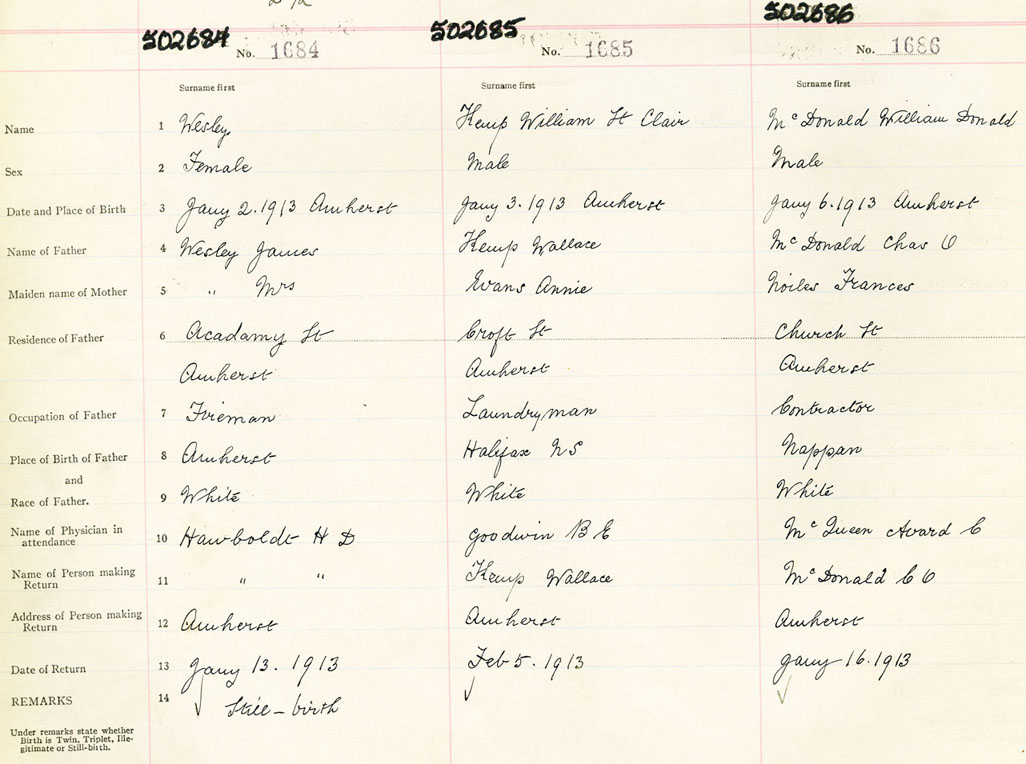 502684 No. 1684 502685 No. 1685 502686 No. 1686
Surname first Surname first Surname first
Name 1 Wesley Kemp William St Clair Mc Donald William Donald
Sex 2 Female Male Male
Date and Place of Birth 3 Jany 2. 1913 Amherst Jany 3. 1913 Amherst Jany 6. 1913 Amherst
Name of Father 4 Wesley James Kemp Wallace Mc Donald Chas O
Maiden name of Mother 5 " Mrs Evans Annie Noiles Frances
Residence of Father 6 Acadamy St Croft St Church St
Amherst Amherst Amherst
Occupation of Father 7 Fireman Laundryman Contractor
Place of Birth of Father 8 Amherst Halifax NS Nappan
and
Race of Father. 9 White White White
Name of Physician in
attendance 10 Hawboldt H D Goodwin B E Mc Queen Avard C
Name of Person making
Return 11 " " Kemp Wallace Mc Donald C O
Address of Person making
Return 12 Amherst Amherst Amherst
Date of Return 13 Jany 13. 1913 Feb 5. 1913 Jany 16. 1913
REMARKS 14 Still - birth
Under remarks state whether
Birth is Twin, Triplet, Ille-
gitimate or Still-birth.